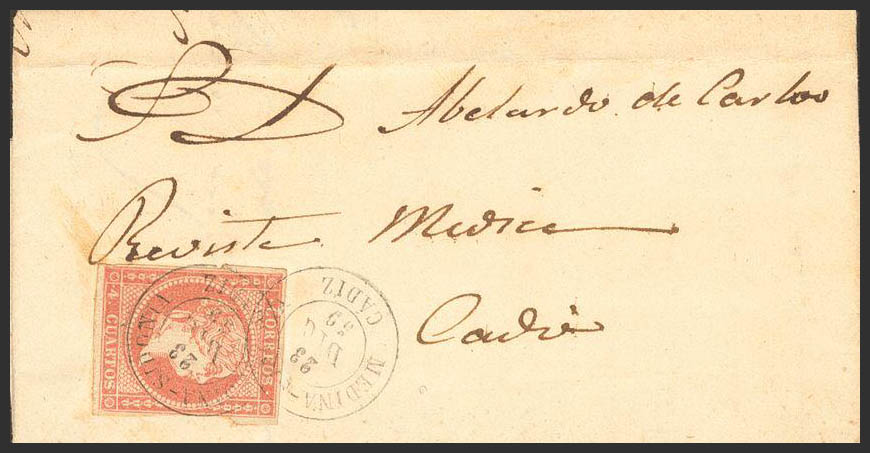 Abelardo de Carlos
Revista Medica
Cadiz
4 CUARTOS
CORREOS
MEDINA-SIDONIA
23
CADIZ
MEDINA-
23
DIC
59
CADIZ